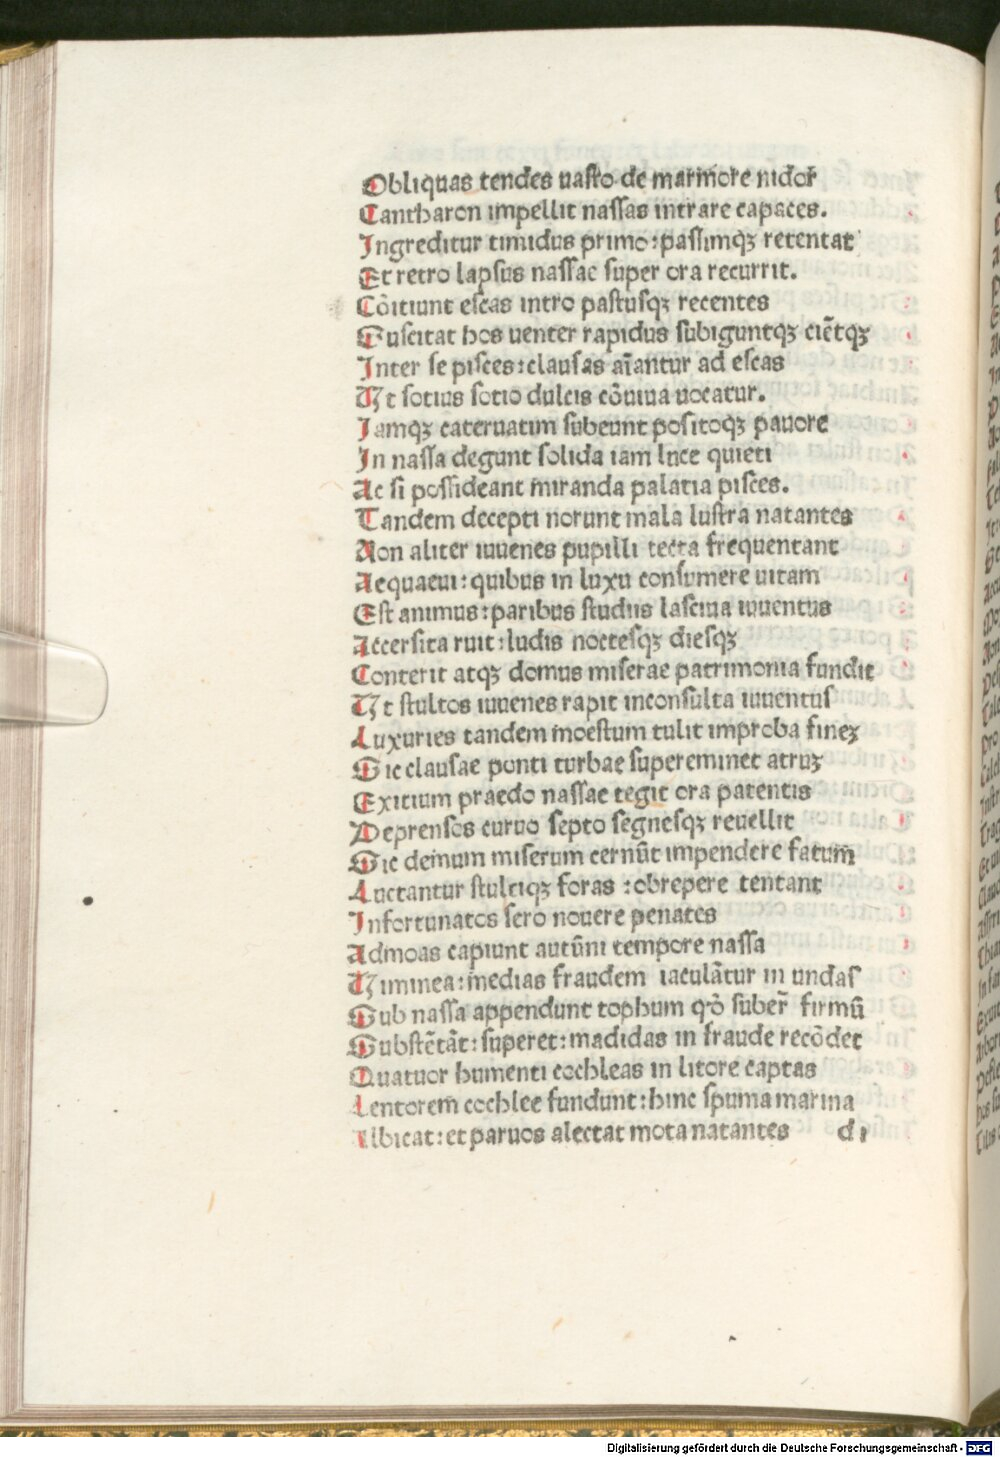 Obliquas tendes uasto de marmore nidor
Cantharon impellit nassas intrare capaces.
Ingreditur timidus primo: passimqʒ retentat
Et retro lapsus nassae super ora recurrit.
Cōitiunt escas intro pastusqʒ recentes
Suscitat hos uenter rapidus subiguntqʒ ciētqʒ
Inter se pisces: clausas aīantur ad escas
Vt sotius sotio dulcis cōuiua uocatur.
Iamqʒ cateruatim subeunt positoqʒ pauore
In nassa degunt solida iam luce quieti
Ac si possideant miranda palatia pisces.
Tandem decepti norunt mala lustra natantes
Non aliter iuuenes pupilli tecta frequentant
Aequaeui: quibus in luxu consumere uitam
Est animus: paribus studiis lasciua iuuentus
Accersita ruit: ludis noctesqʒ diesqʒ
Conterit atqʒ domus miserae patrimonia fundit
Vt stultos iuuenes rapit inconsulta iuuentus
Luxuries tandem moestum tulit improba fineʒ
Sic clausae ponti turbae supereminet atruʒ
Exitium praedo nassae tegit ora patentis
Deprensos curuo septo segnesqʒ reuellit
Sic demum miserum cernūt impendere fatum
Luctantur stultiqʒ foras: obrepere tentant
Infortunatos sero nouere penates
Admoas capiunt autūni tempore nassa
Viminea: medias fraudem iaculātur in undas
Sub nassa appendunt tophum qō suber̄ firmū
Substētāt: superet: madidas in fraude recōdet
Quatuor humenti cochleas in litore captas
Lentorem cochlee fundunt: hinc spuma marina
Albicat: et paruos alectat mota natantes d i
Digitalisierung gefördert durch die Deutsche Forschungsgemeinschaft - DFG